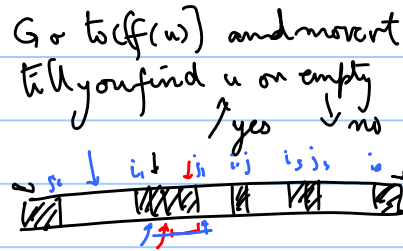 Go to (f(u)) and move rt
till you find u or empty
yes no
i₁ j₁ i j i₃ j₃